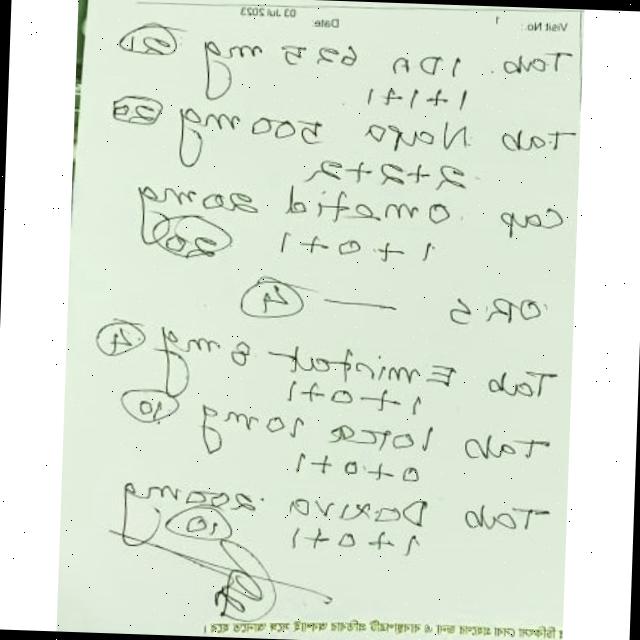 Visit No: 1 Date 03 Jul 2023
Tab. 625 mg 21
1+1+1
Tab Napa 500 mg
2+2+2
Cap Omefid 20mg
1+0+1 20
ORS — 4
Tab Emistat 8 mg 4
1+0+1
Tab 10mg 10
0+0+1
Tab Doxiva 200mg
1+0+1 10